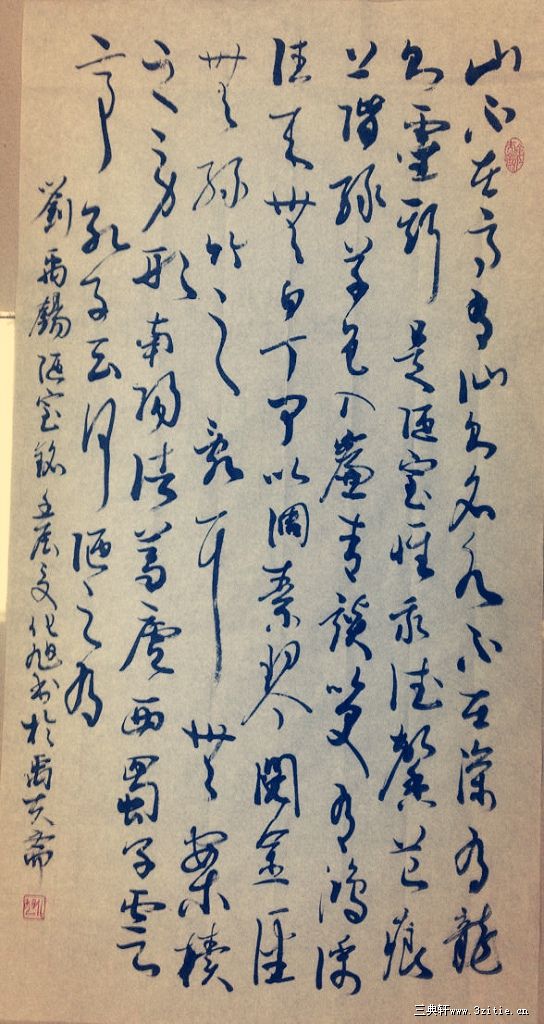 山不在高有仙則名水不在深有龍
則靈斯是陋室惟吾德馨苔痕
上階綠草色入簾青談笑有鴻儒
往來無白丁可以調素琴閱金經
無絲竹之亂耳無案牘
之勞形南陽諸葛廬西蜀子雲
亭孔子云何陋之有
劉禹錫陋室銘壬辰文化旭書於禹天齋
三典轩www.3zitie.cn